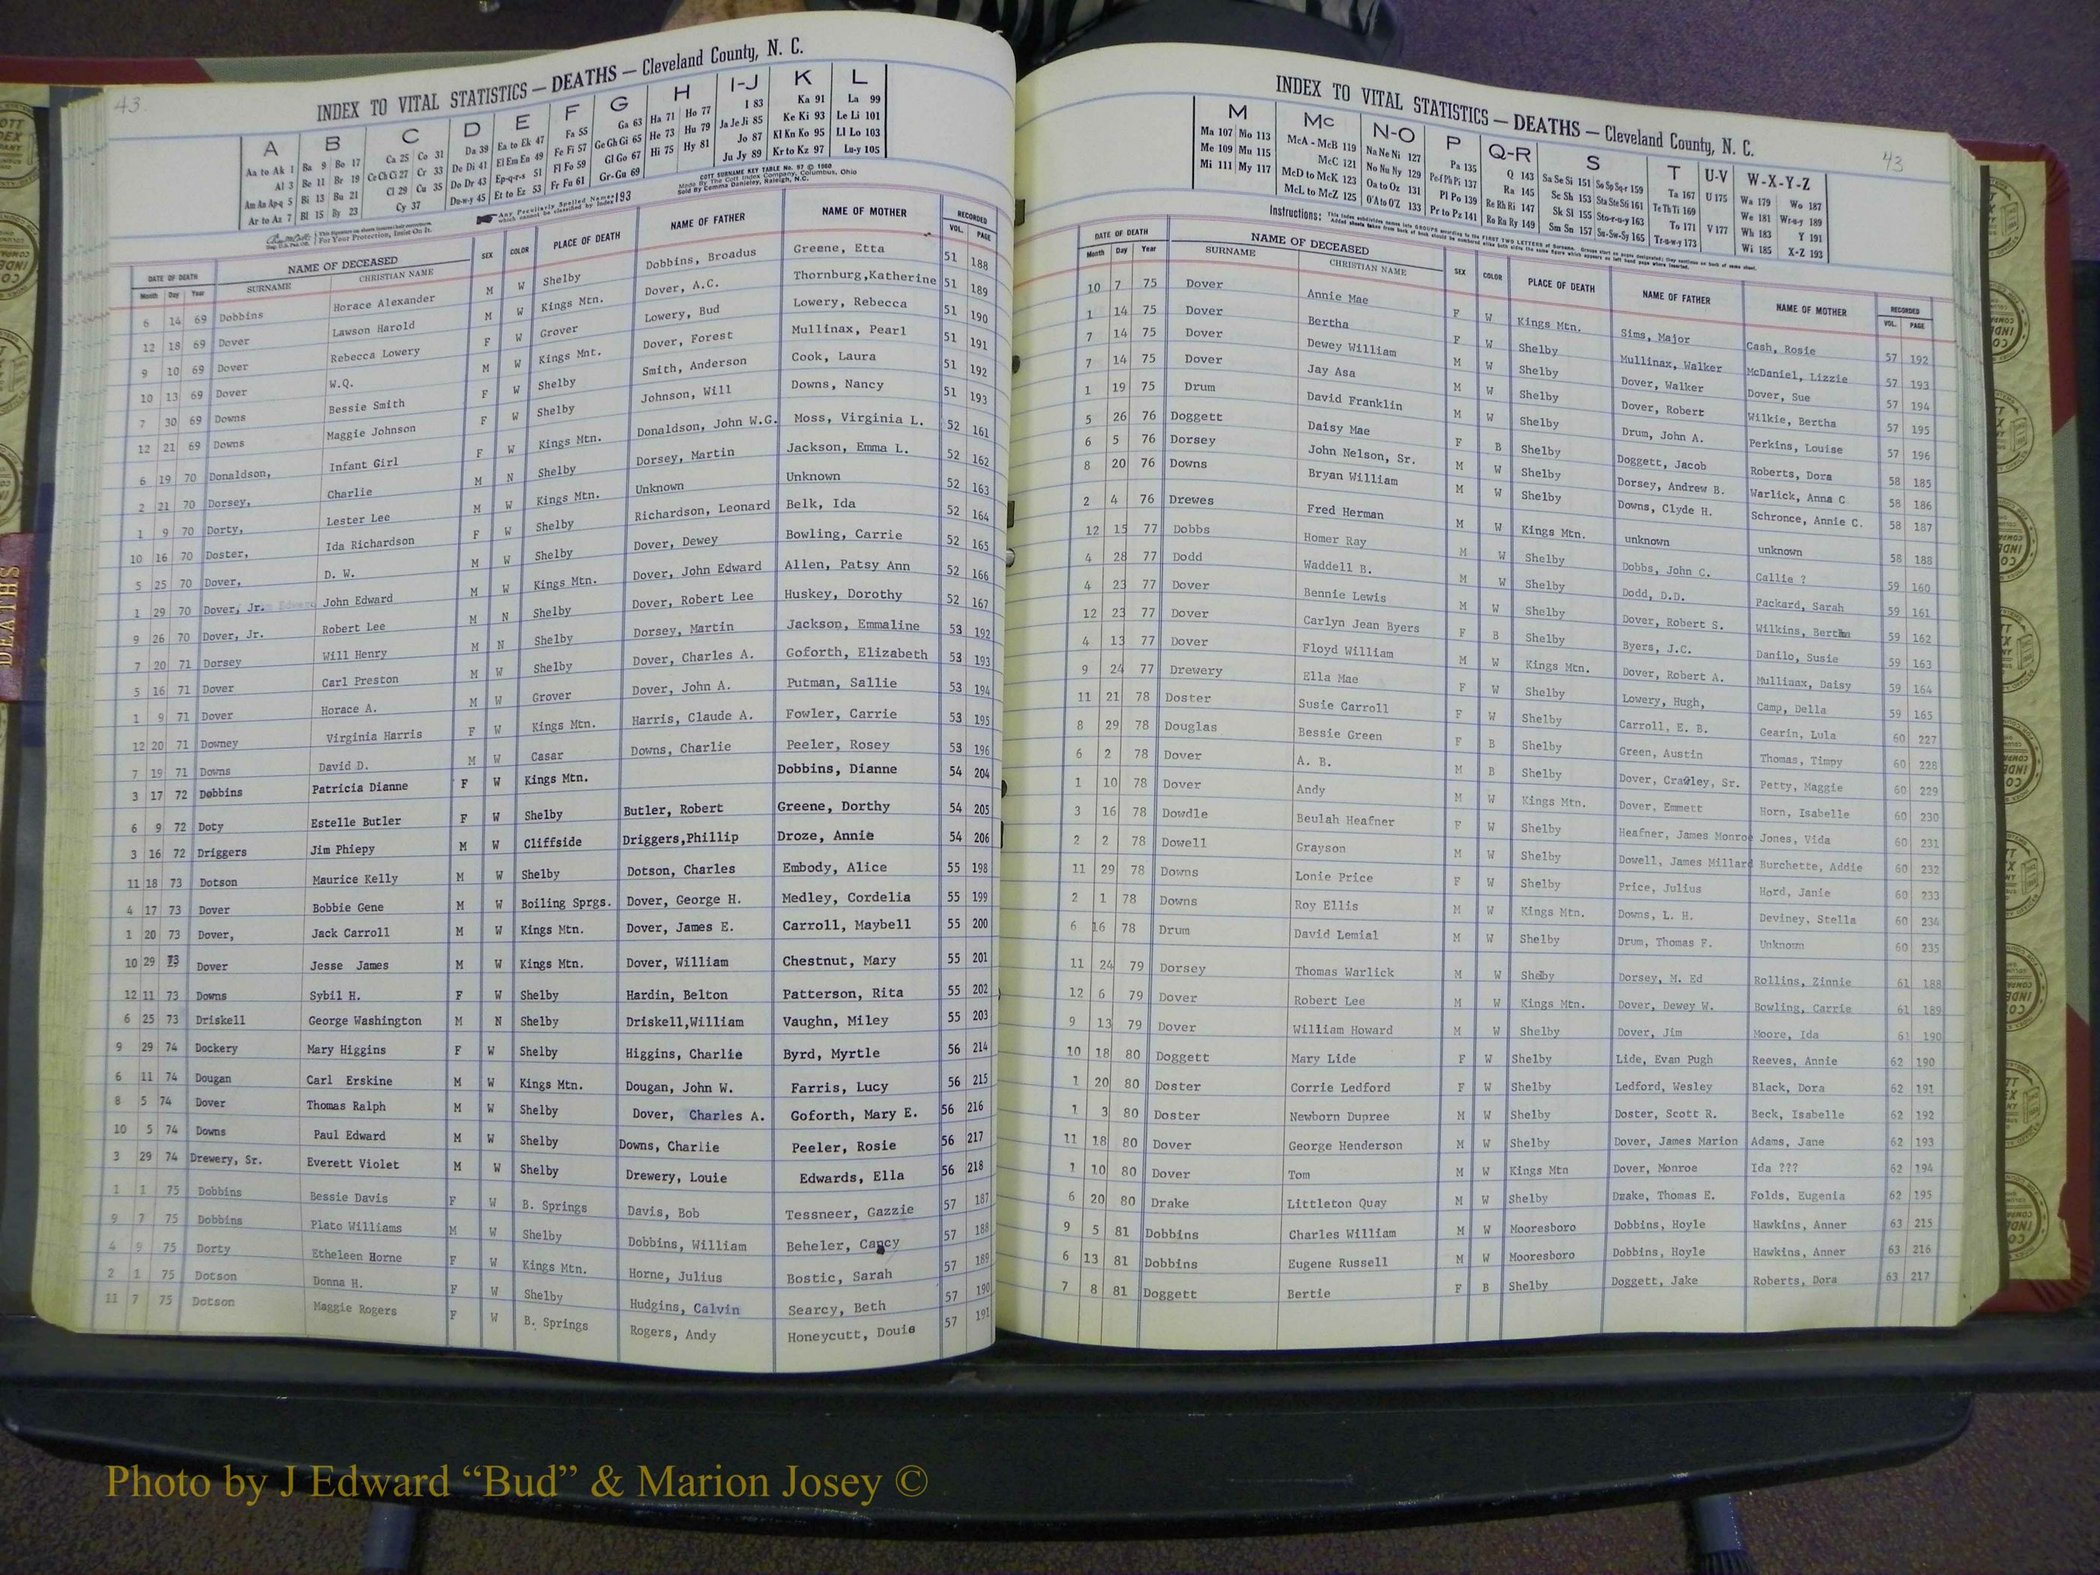 43
INDEX TO VITAL STATISTICS — DEATHS — Cleveland County, N. C.
A B C D E F G H I-J K L
Aa to Ak 1 Ba 9 Bo 17 Ca 25 Co 31 Da 39 Ea to Ek 47 Fa 55 Ga 63 Ha 71 Ho 77 I 83 Ka 91 La 99
Al 3 Be 11 Br 19 Ce Ch Ci 27 Cr 33 De Di 41 El Em En 49 Fe Fi 57 Ge Gh Gi 65 He 73 Hu 79 Ja Je Ji 85 Ke Ki 93 Le Li 101
Am An Ap-q 5 Bi 13 Bu 21 Cl 29 Cu 35 Do Dr 43 Ep-q-r-s 51 Fl Fo 59 Gl Go 67 Hi 75 Hy 81 Jo 87 Kl Kn Ko 95 Ll Lo 103
Ar to Az 7 Bl 15 By 23 Cy 37 Du-w-y 45 Et to Ez 53 Fr Fu 61 Gr-Gu 69 Ju Jy 89 Kr to Kz 97 Lu-y 105
For Your Protection, Insist On It.
Any Peculiarly Spelled Names which cannot be classified by Index 193
COTT SURNAME KEY TABLE No. 97 © 1960
Made By The Cott Index Company, Columbus, Ohio
DATE OF DEATH NAME OF DECEASED SEX COLOR PLACE OF DEATH NAME OF FATHER NAME OF MOTHER RECORDED
Month Day Year SURNAME CHRISTIAN NAME VOL. PAGE
6 14 69 Dobbins Horace Alexander M W Shelby Dobbins, Broadus Greene, Etta 51 188
12 18 69 Dover Lawson Harold M W Kings Mtn. Dover, A.C. Thornburg,Katherine 51 189
9 10 69 Dover Rebecca Lowery F W Grover Lowery, Bud Lowery, Rebecca 51 190
10 13 69 Dover W.Q. M W Kings Mnt. Dover, Forest Mullinax, Pearl 51 191
7 30 69 Downs Bessie Smith F W Shelby Smith, Anderson Cook, Laura 51 192
12 21 69 Downs Maggie Johnson F W Shelby Johnson, Will Downs, Nancy 51 193
6 19 70 Donaldson, Infant Girl F W Kings Mtn. Donaldson, John W.G. Moss, Virginia L. 52 161
2 21 70 Dorsey, Charlie M N Shelby Dorsey, Martin Jackson, Emma L. 52 162
1 9 70 Dorty, Lester Lee M W Kings Mtn. Unknown Unknown 52 163
10 16 70 Doster, Ida Richardson F W Shelby Richardson, Leonard Belk, Ida 52 164
5 25 70 Dover, D. W. M W Shelby Dover, Dewey Bowling, Carrie 52 165
1 29 70 Dover, Jr. John Edward M W Kings Mtn. Dover, John Edward Allen, Patsy Ann 52 166
9 26 70 Dover, Jr. Robert Lee M N Shelby Dover, Robert Lee Huskey, Dorothy 52 167
7 20 71 Dorsey Will Henry M N Shelby Dorsey, Martin Jackson, Emmaline 53 192
5 16 71 Dover Carl Preston M W Shelby Dover, Charles A. Goforth, Elizabeth 53 193
1 9 71 Dover Horace A. M W Grover Dover, John A. Putman, Sallie 53 194
12 20 71 Downey Virginia Harris F W Kings Mtn. Harris, Claude A. Fowler, Carrie 53 195
7 19 71 Downs David D. M W Casar Downs, Charlie Peeler, Rosey 53 196
3 17 72 Dobbins Patricia Dianne F W Kings Mtn. Dobbins, Dianne 54 204
6 9 72 Doty Estelle Butler F W Shelby Butler, Robert Greene, Dorthy 54 205
3 16 72 Driggers Jim Phiepy M W Cliffside Driggers,Phillip Droze, Annie 54 206
11 18 73 Dotson Maurice Kelly M W Shelby Dotson, Charles Embody, Alice 55 198
4 17 73 Dover Bobbie Gene M W Boiling Sprgs. Dover, George H. Medley, Cordelia 55 199
1 20 73 Dover, Jack Carroll M W Kings Mtn. Dover, James E. Carroll, Maybell 55 200
10 29 73 Dover Jesse James M W Kings Mtn. Dover, William Chestnut, Mary 55 201
12 11 73 Downs Sybil H. F W Shelby Hardin, Belton Patterson, Rita 55 202
6 25 73 Driskell George Washington M N Shelby Driskell,William Vaughn, Miley 55 203
9 29 74 Dockery Mary Higgins F W Shelby Higgins, Charlie Byrd, Myrtle 56 214
6 11 74 Dougan Carl Erskine M W Kings Mtn. Dougan, John W. Farris, Lucy 56 215
8 5 74 Dover Thomas Ralph M W Shelby Dover, Charles A. Goforth, Mary E. 56 216
10 5 74 Downs Paul Edward M W Shelby Downs, Charlie Peeler, Rosie 56 217
3 29 74 Drewery, Sr. Everett Violet M W Shelby Drewery, Louie Edwards, Ella 56 218
1 1 75 Dobbins Bessie Davis F W B. Springs Davis, Bob Tessneer, Gazzie 57 187
9 7 75 Dobbins Plato Williams M W Shelby Dobbins, William Beheler, 57 188
4 9 75 Dorty Etheleen Horne F W Kings Mtn. Horne, Julius Bostic, Sarah 57 189
2 1 75 Dotson Donna H. F W Shelby Hudgins, Calvin Searcy, Beth 57 190
11 7 75 Dotson Maggie Rogers F W B. Springs Rogers, Andy Honeycutt, Douie 57 191
INDEX TO VITAL STATISTICS — DEATHS — Cleveland County, N. C.
43
M Mc N-O P Q-R S T U-V W-X-Y-Z
Ma 107 Mo 113 McA - McB 119 Na Ne Ni 127 Pa 135 Q 143 Sa Se Si 151 So Sp Sq-r 159 Ta 167 U 175 Wa 179 Wo 187
Me 109 Mu 115 McC 121 No Nu Ny 129 Pe-f Ph Pi 137 Ra 145 Sc Sh 153 Sta Ste Sti 161 Te Th Ti 169 We 181 Wr-u-y 189
Mi 111 My 117 McD to McK 123 Oa to Oz 131 Pl Po 139 Re Rh Ri 147 Sk Sl 155 Sto-r-u-y 163 To 171 V 177 Wh 183 Y 191
McL to McZ 125 O'A to O'Z 133 Pr to Pz 141 Ro Ru Ry 149 Sm Sn 157 Su-Sw-Sy 165 Tr-u-w-y 173 Wi 185 X-Z 193
Instructions:
DATE OF DEATH NAME OF DECEASED SEX COLOR PLACE OF DEATH NAME OF FATHER NAME OF MOTHER RECORDED
Month Day Year SURNAME CHRISTIAN NAME VOL. PAGE
10 7 75 Dover Annie Mae F W Kings Mtn. Sims, Major Cash, Rosie 57 192
1 14 75 Dover Bertha F W Shelby Mullinax, Walker McDaniel, Lizzie 57 193
7 14 75 Dover Dewey William M W Shelby Dover, Walker Dover, Sue 57 194
7 14 75 Dover Jay Asa M W Shelby Dover, Robert Wilkie, Bertha 57 195
1 19 75 Drum David Franklin M W Shelby Drum, John A. Perkins, Louise 57 196
5 26 76 Doggett Daisy Mae F B Shelby Doggett, Jacob Roberts, Dora 58 185
6 5 76 Dorsey John Nelson, Sr. M W Shelby Dorsey, Andrew B. Warlick, Anna C 58 186
8 20 76 Downs Bryan William M W Shelby Downs, Clyde H. Schronce, Annie C. 58 187
2 4 76 Drewes Fred Herman M W Kings Mtn. unknown unknown 58 188
12 15 77 Dobbs Homer Ray M W Shelby Dobbs, John C. Callie ? 59 160
4 28 77 Dodd Waddell B. M W Shelby Dodd, D.D. Packard, Sarah 59 161
4 23 77 Dover Bennie Lewis M W Shelby Dover, Robert S. Wilkins, Bertha 59 162
12 23 77 Dover Carlyn Jean Byers F B Shelby Byers, J.C. Danilo, Susie 59 163
4 13 77 Dover Floyd William M W Kings Mtn. Dover, Robert A. Mullinax, Daisy 59 164
9 24 77 Drewery Ella Mae F W Shelby Lowery, Hugh, Camp, Della 59 165
11 21 78 Doster Susie Carroll F W Shelby Carroll, E. B. Gearin, Lula 60 227
8 29 78 Douglas Bessie Green F B Shelby Green, Austin Thomas, Timpy 60 228
6 2 78 Dover A. B. M B Shelby Dover, Crawley, Sr. Petty, Maggie 60 229
1 10 78 Dover Andy M W Kings Mtn. Dover, Emmett Horn, Isabelle 60 230
3 16 78 Dowdle Beulah Heafner F W Shelby Heafner, James Monroe Jones, Vida 60 231
2 2 78 Dowell Grayson M W Shelby Dowell, James Millard Burchette, Addie 60 232
11 29 78 Downs Lonie Price F W Shelby Price, Julius Hord, Janie 60 233
2 1 78 Downs Roy Ellis M W Kings Mtn. Downs, L. H. Deviney, Stella 60 234
6 16 78 Drum David Lemial M W Shelby Drum, Thomas F. Unknown 60 235
11 24 79 Dorsey Thomas Warlick M W Shelby Dorsey, M. Ed Rollins, Zinnie 61 188
12 6 79 Dover Robert Lee M W Kings Mtn. Dover, Dewey W. Bowling, Carrie 61 189
9 13 79 Dover William Howard M W Shelby Dover, Jim Moore, Ida 61 190
10 18 80 Doggett Mary Lide F W Shelby Lide, Evan Pugh Reeves, Annie 62 190
1 20 80 Doster Corrie Ledford F W Shelby Ledford, Wesley Black, Dora 62 191
1 3 80 Doster Newborn Dupree M W Shelby Doster, Scott R. Beck, Isabelle 62 192
11 18 80 Dover George Henderson M W Shelby Dover, James Marion Adams, Jane 62 193
1 10 80 Dover Tom M W Kings Mtn Dover, Monroe Ida ??? 62 194
6 20 80 Drake Littleton Quay M W Shelby Drake, Thomas E. Folds, Eugenia 62 195
9 5 81 Dobbins Charles William M W Mooresboro Dobbins, Hoyle Hawkins, Anner 63 215
6 13 81 Dobbins Eugene Russell M W Mooresboro Dobbins, Hoyle Hawkins, Anner 63 216
7 8 81 Doggett Bertie F B Shelby Doggett, Jake Roberts, Dora 63 217
DEATHS
Photo by J Edward “Bud” & Marion Josey ©